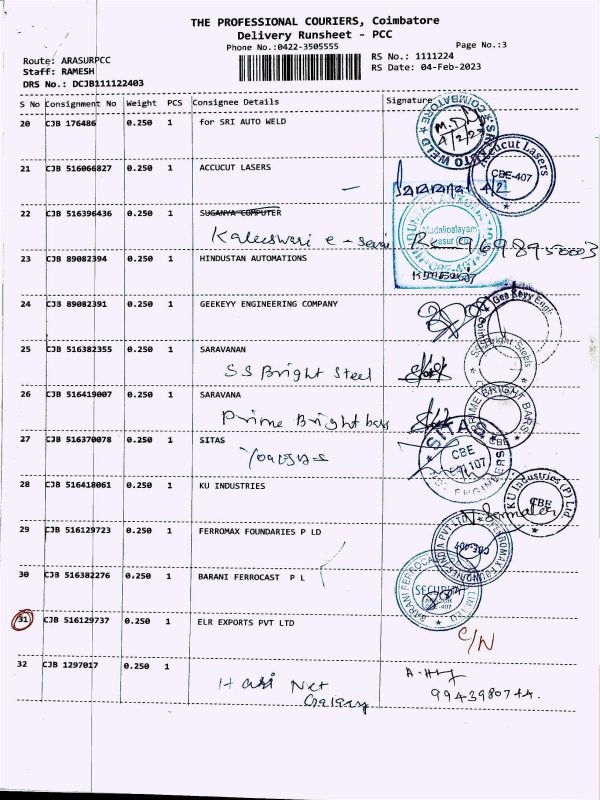 THE PROFESSIONAL COURIERS, Coimbatore
Delivery Runsheet - PCC
Phone No.:0422-3505555
Page No.:3
Route: ARASURPCC
RS No.: 1111224
Staff: RAMESH
RS Date: 04-Feb-2023
DRS No.: DCJB111122403
S No Consignment No Weight PCS Consignee Details Signature
20 CJB 176486 0.250 1 for SRI AUTO WELD
COIMBATORE
SRI AUTO WELD
4/2/23
21 CJB 516066827 0.250 1 ACCUCUT LASERS
Accucut Lasers
CBE-407
Saravanan 4/2
22 CJB 516396436 0.250 1 SUGANYA COMPUTER
Kaleeswari e - sevai
9698950003
Mudalipalayam
23 CJB 89082394 0.250 1 HINDUSTAN AUTOMATIONS
CBE-407
24 CJB 89082391 0.250 1 GEEKEYY ENGINEERING COMPANY
Gee Keyy Engi
25 CJB 516382355 0.250 1 SARAVANAN
SS Bright Steel
26 CJB 516419007 0.250 1 SARAVANA
Prime Bright bars
PRIME BRIGHT BARS
CBE
27 CJB 516370078 0.250 1 SITAS
SITAS
CBE
ENGINEERS
28 CJB 516418061 0.250 1 KU INDUSTRIES
KU Industries (P) Ltd
CBE
29 CJB 516129723 0.250 1 FERROMAX FOUNDARIES P LD
FERROMAX FOUNDRIES INDIA PVT LTD
CBE-407
30 CJB 516382276 0.250 1 BARANI FERROCAST P L
BARANI FERROCAST
LIMITED
SECURITY
31 CJB 516129737 0.250 1 ELR EXPORTS PVT LTD
C/N
32 CJB 1297017 0.250 1
Hari Net
9943980744.